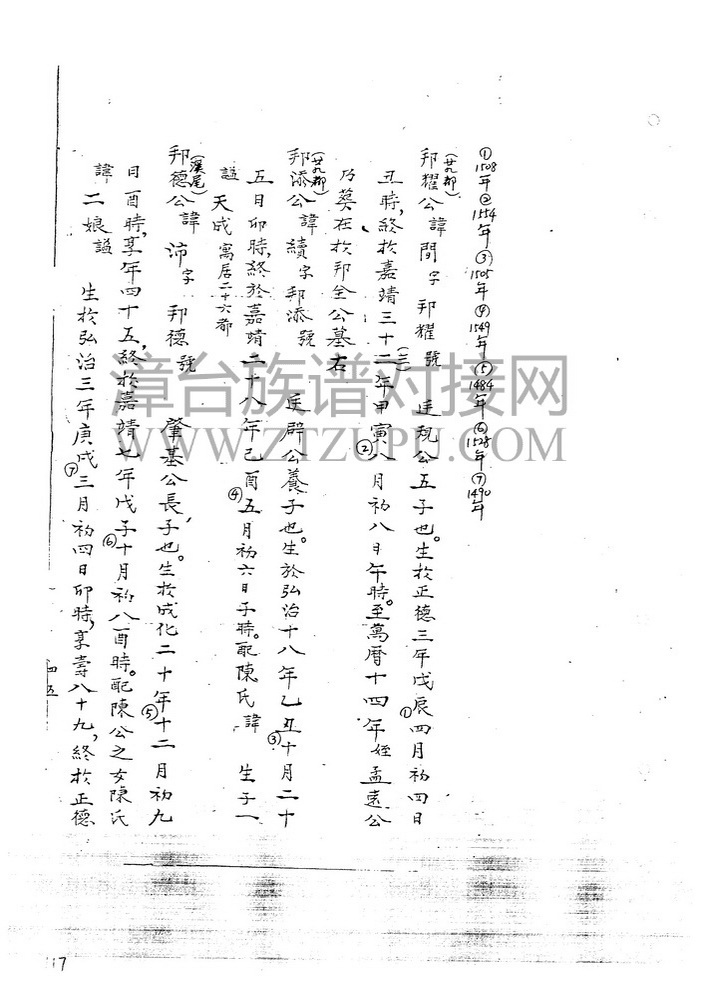 ①1508年②1554年③1505年④1549年⑤1484年⑥1528年⑦1490年
(廿九都)
邦耀公諱間字邦耀號 廷現公五子也。生於正德三年戊辰①四月初四日
丑時,終於嘉靖三十二(三)年甲寅②八月初八日午時。至萬曆十四年姪孟遠公
乃葬在於邦全公墓右
(廿九都)
邦添公諱續字邦添號 廷辟公養子也。生於弘治十八年乙丑③十月二十
五日卯時,終於嘉靖二十八年己酉④五月初六日子時。配陳氏諱 生子一
諡天成寓居二十六都
(溪尾)
邦德公諱沛字邦德號 肇基公長子也。生於成化二十年⑤十二月初九
日酉時,享年四十五,終於嘉靖七年戊子⑥十月初八酉時。配陳公之女陳氏
諱二娘諡 生於弘治三年庚戌⑦三月初四日卯時,享壽八十九,終於正德
四五
117
漳台族谱对接网
WWW.ZTZUPU.COM